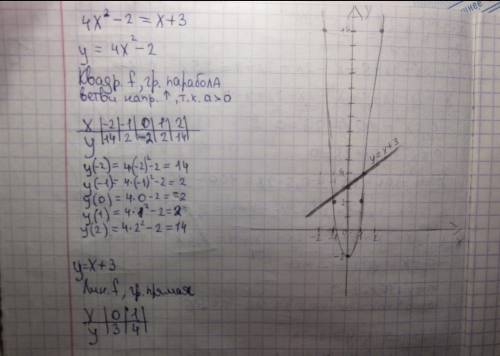 4x² - 2 = x + 3
y = 4x² - 2
Квадр. f, гр. парабола
ветви напр. ↑, т.к. a > 0
x | -2 | -1 | 0 | 1 | 2
y | 14 | 2 | -2 | 2 | 14
y(-2) = 4·(-2)² - 2 = 14
y(-1) = 4·(-1)² - 2 = 2
y(0) = 4·0 - 2 = -2
y(1) = 4·1² - 2 = 2
y(2) = 4·2² - 2 = 14
y = x + 3
Лин. f, гр. прямая
x | 0 | 1
y | 3 | 4
y
y = x + 3
4
-2 -1 1 2
x
-2